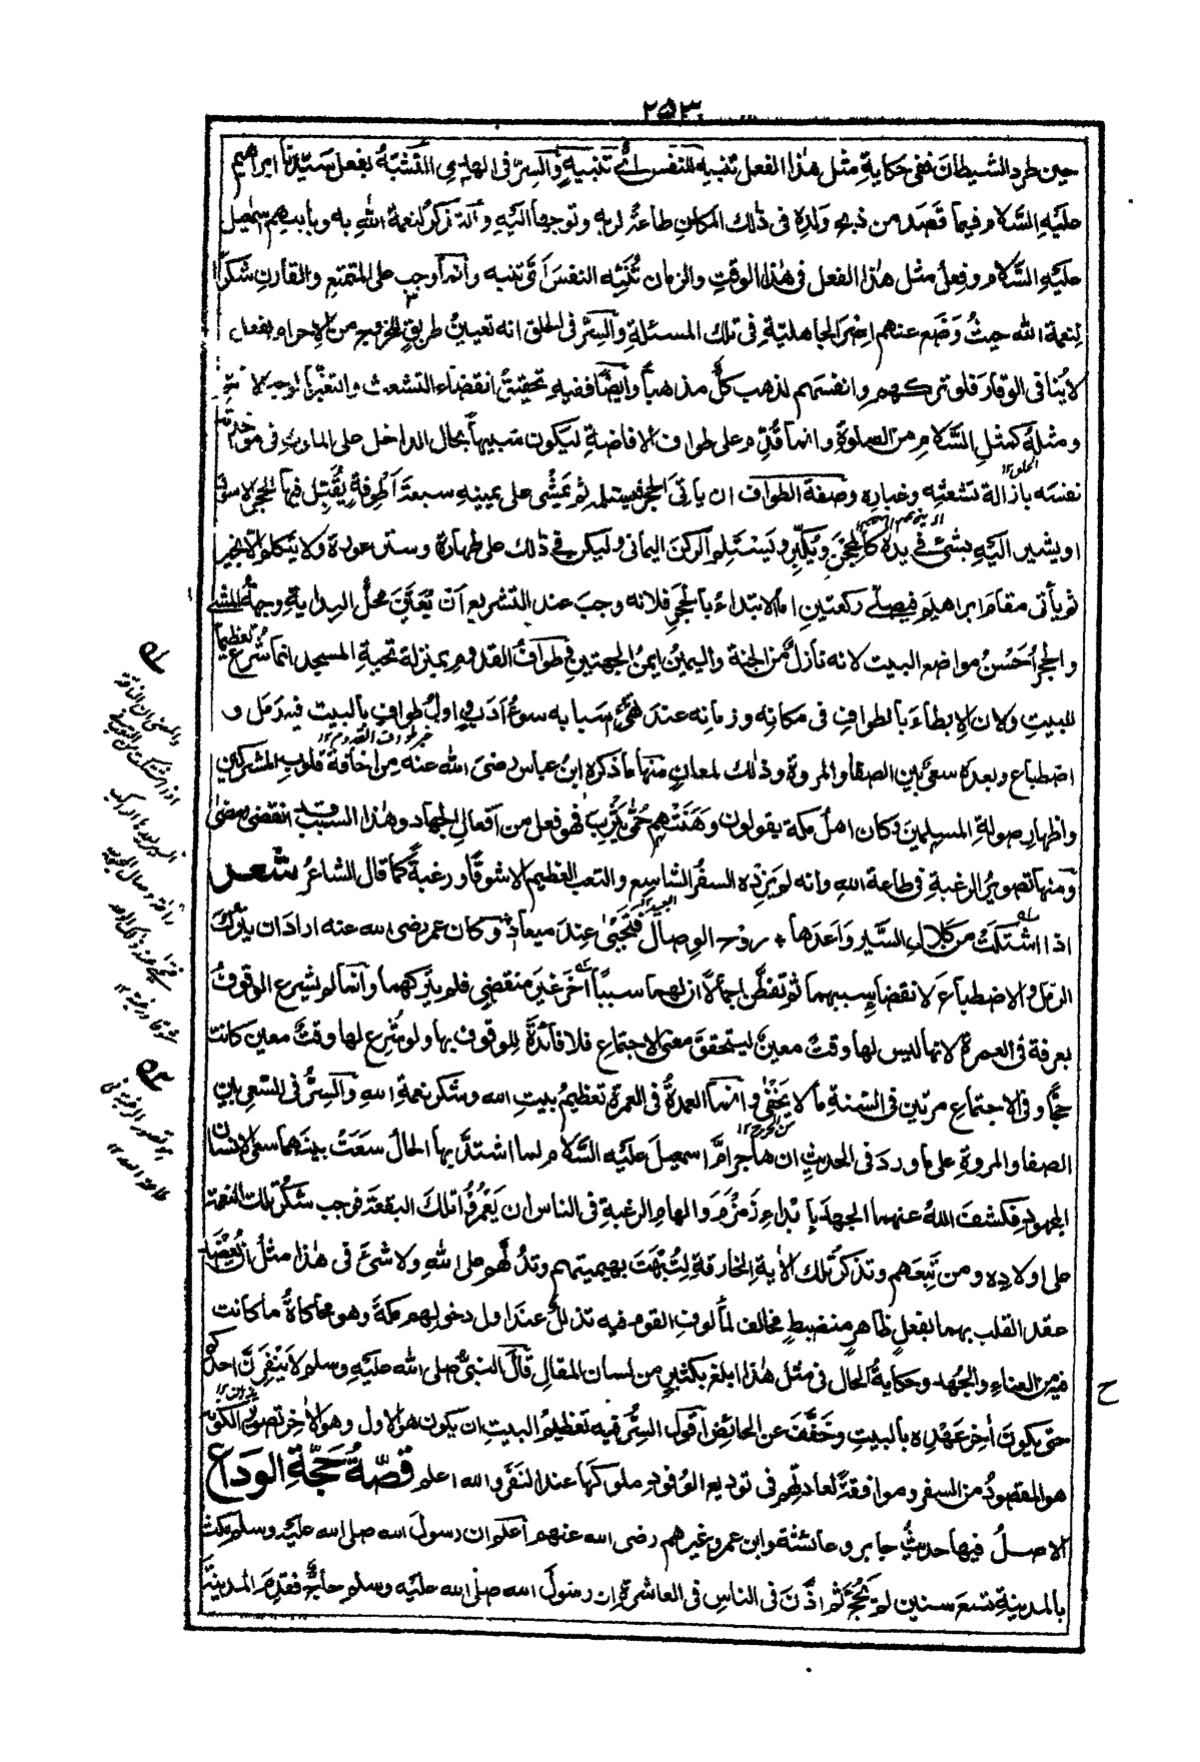 ٢٥٣
حين طرد الشيطان ففى حكاية مثل هذا الفعل تنبيه للنفس اىّ تنبيه والسر فى الهدى التشبه بفعل سيدنا ابراهيم
عليه السلام فيما قصد من ذبح ولده فى ذلك المكان طاعة لربه وتوجها اليه والتذكر لنعمة الله به وبابيهم اسمعيل
عليه السلام وفعل مثل هذا الفعل فى هذا الوقت والزمان تنبه النفس اى تنبه وانما وجب على المتمتع والقارن شكرا
لنعمة الله حيث وضع عنهم اصر الجاهلية فى تلك المسئلة والسر فى الحلق انه تعيين طريق للخروج من الاحرام بفعل
لا ينافى الوقار فلو تركهم وانفسهم لذهب كل مذهبا وايضا ففيه تحقيق انقضاء التشعث والتغبر بالوجه الاتم
ومثله كمثل السلام من الصلوة وانما قدم على طواف الافاضة ليكون شبيها بحال الداخل على الملوك فى مواخذته
نفسه بازالة تشعثه وغباره وصفة الطواف ان ياتى الحجر فيستلمه ثم يمشى على يمينه سبعة اطوفة يقبل فيها الحجر الاسود
او يشير اليه بشئ فى يده كالمحجن ويكبر ويستلم الركن اليمانى وليكن فى ذلك على طهارة وستر عورة ولا يتكلم الا بخير
ثم يأتى مقام ابراهيم فيصلى ركعتين اما الابتداء بالحجر فلانه وجب عند التشريع ان يتعين محل البداية وجهة المشى
والحجر احسن مواضع البيت لانه نازل من الجنة واليمين ايمن الجهتين وطواف القدوم بمنزلة تحية المسجد انما شرع تعظيما
للبيت ولان الابطاء بالطواف فى مكانه وزمانه عند تهيؤ اسبابه سوء ادب واول طواف بالبيت فيه رمل و
اضطباع وبعده سعى بين الصفا والمروة وذلك لمعان منها ما ذكره ابن عباس رضى الله عنه من اخافة قلوب المشركين
واظهار صولة المسلمين وكان اهل مكة يقولون وهنتهم حمى يثرب فهو فعل من افعال الجهاد وهذا السبب قد انقضى ومضى
ومنها تصوير الرغبة فى طاعة الله وانه لم يزده السفر الشاسع والتعب العظيم الا شوقا ورغبة كما قال الشاعر شعر
اذا اشتكت من كلال السير واعدها * روح الوصال فتحيى عند ميعاد وكان عمر رضى الله عنه اراد ان يترك
الرمل والاضطباع لانقضاء سببهما ثم تفطن اجمالا ان لهما سببا آخر غير منقض فلم يتركهما وانما لم يشرع الوقوف
بعرفة فى العمرة لانها ليس لها وقت معين ليتحقق معنى الاجتماع فلا فائدة للوقوف بها ولو شرع لها وقت معين كانت
حجا وفى الاجتماع مرتين فى السنة ما لا يخفى وانما العمدة فى العمرة تعظيم بيت الله وشكر نعمة الله والسر فى السعى بين
الصفا والمروة على ما ورد فى الحديث ان هاجر ام اسمعيل عليه السلام لما اشتد بها الحال سعت بينهما سعى الانسان
المجهود فكشف الله عنهما الجهد بابداء زمزم والهام الرغبة فى الناس ان يعمروا تلك البقعة فوجب شكر تلك النعمة
على اولاده ومن تبعهم وتذكر تلك الآية الخارقة لتبهت بهيميتهم وتدلهم على الله ولا شئ فى هذا مثل ان يعضد
عقد القلب بهما بفعل ظاهر منضبط مخالف لمألوف القوم فيه تذلل عند اول دخولهم مكة وهو محاكاة ما كانت
فيه من العناء والجهد وحكاية الحال فى مثل هذا ابلغ بكثير من لسان المقال قال النبى صلى الله عليه وسلم لا ينفرن احدكم
حتى يكون آخر عهده بالبيت وخفف عن الحائض اقول السر فيه تعظيم البيت ان يكون هو الاول وهو الآخر تصويرا لكونه
هو المقصود من السفر وموافقة لعادتهم فى توديع الوفود ملوكها عند النفر والله اعلم قصة حجة الوداع
الاصل فيها حديث جابر وعائشة وابن عمر وغيرهم رضى الله عنهم اعلم ان رسول الله صلى الله عليه وسلم مكث
بالمدينة تسع سنين لم يحج ثم اذن فى الناس فى العاشرة ان رسول الله صلى الله عليه وسلم حاج فقدم المدينة